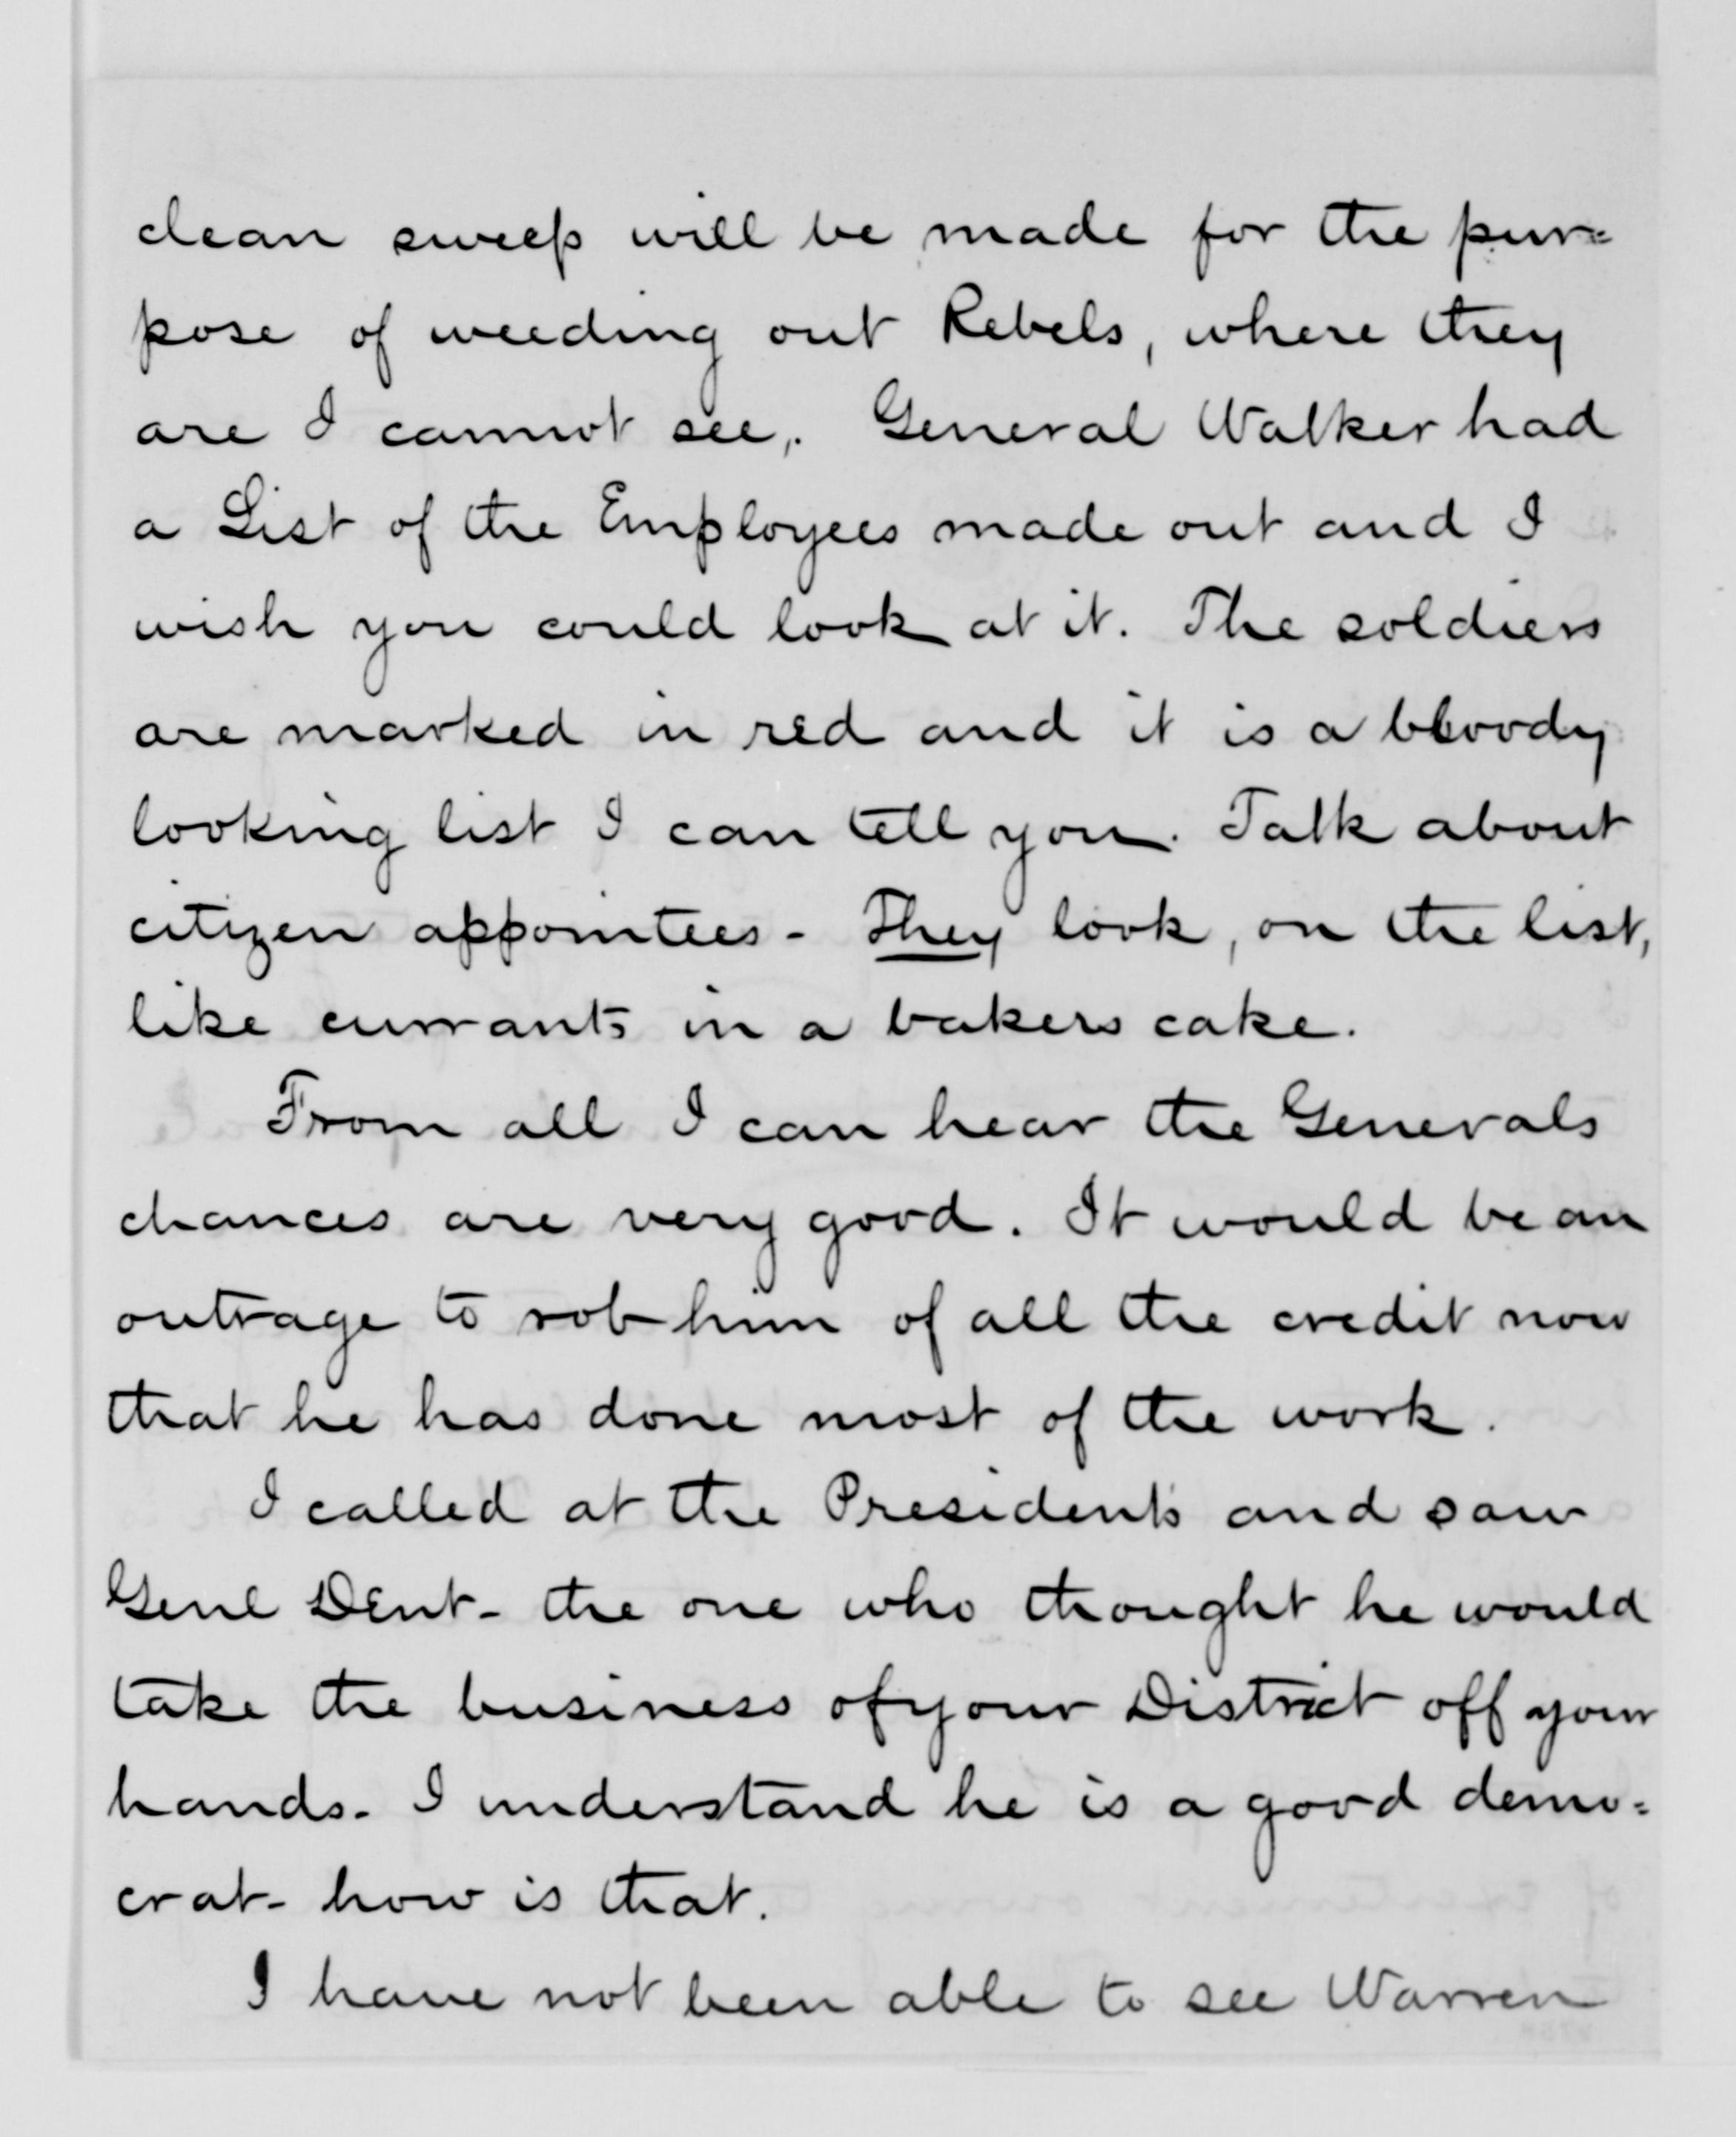 clean sweep will be made for the pur=
pose of weeding out Rebels, where they
are I cannot see,. General Walker had
a List of the Employees made out and I
wish you could look at it. The soldiers
are marked in red and it is a bloody
looking list I can tell you. Talk about
citizen appointees - They look, on the list,
like currants in a bakers cake.
From all I can hear the Generals
chances are very good. It would be an
outrage to rob him of all the credit now
that he has done most of the work.
I called at the President's and saw
Genl Dent - the one who thought he would
take the business of your District off your
hands - I understand he is a good demo=
crat - how is that.
I have not been able to see Warren